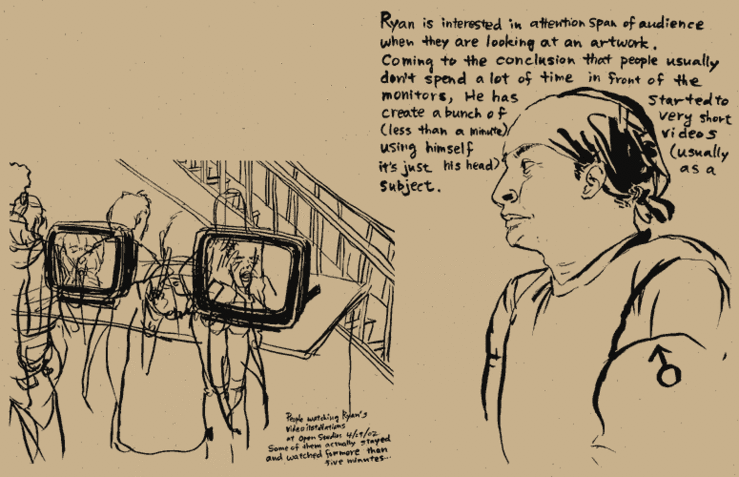 Ryan is interested in attention span of audience
when they are looking at an artwork.
Coming to the conclusion that people usually
don't spend a lot of time in front of the
monitors, He has started to
create a bunch of very short
(less than a minute) videos
using himself (usually
it's just his head) as a
subject.
People watching Ryan's
video installations
at Open Studios 4/27/02
Some of them actually stayed
and watched for more than
five minutes...